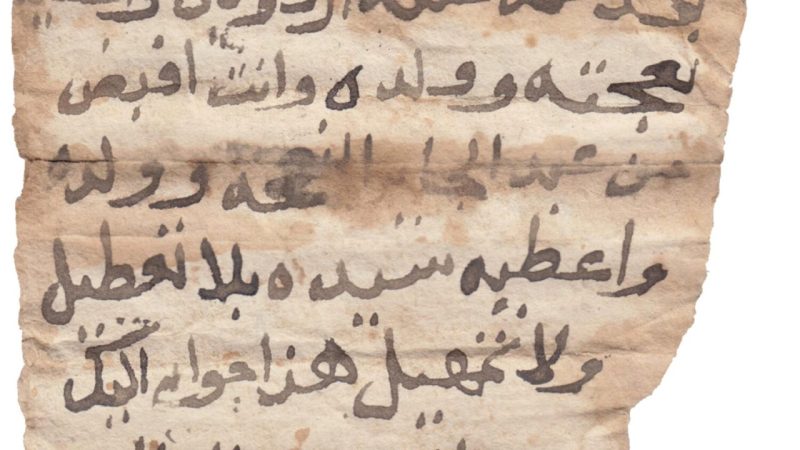 نعجته وولده وانت اقبض
من عبد الجابر النعجته وولده
واعطيه سيده بلا تعطيل
ولا تمهيل هذا جوابي اليك